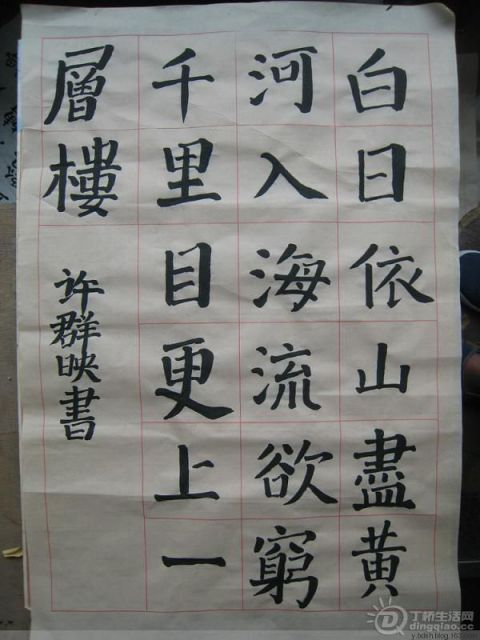 白日依山盡黄
河入海流欲窮
千里目更上一
層樓
许群映書
丁桥生活网
dingqiao.cc